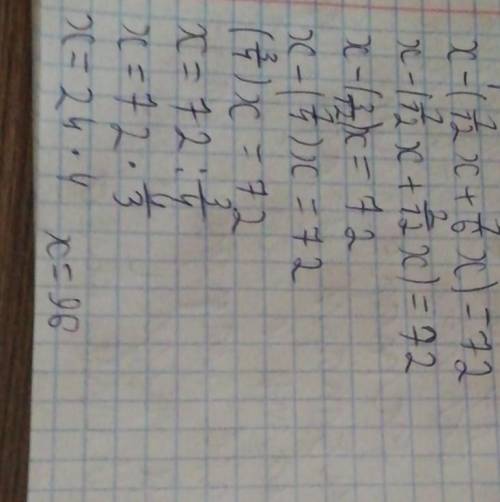 x - (1/12 x + 1/6 x) = 72
x - (1/12 x + 2/12 x) = 72
x - (3/12)x = 72
x - (1/4)x = 72
(3/4)x = 72
x = 72 : 3/4
x = 72 · 4/3
x = 24 · 4 x = 96